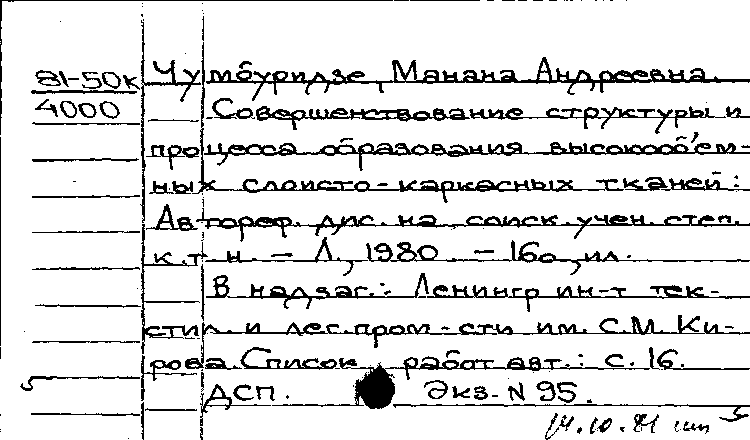 81-50к Чумбуридзе, Манана Андреевна.
4000 Совершенствование структуры и
процесса образования высокообъем-
ных слоисто-каркасных тканей:
Автореф. дис. на соиск. учен. степ.
к.т.н. - Л., 1980. - 16с., ил.
В надзаг.: Ленингр ин-т тек-
стил. и лег. пром-сти им. С.М. Ки-
рова. Список работ авт.: с. 16.
ДСП. Экз. N 95.
14.10.81